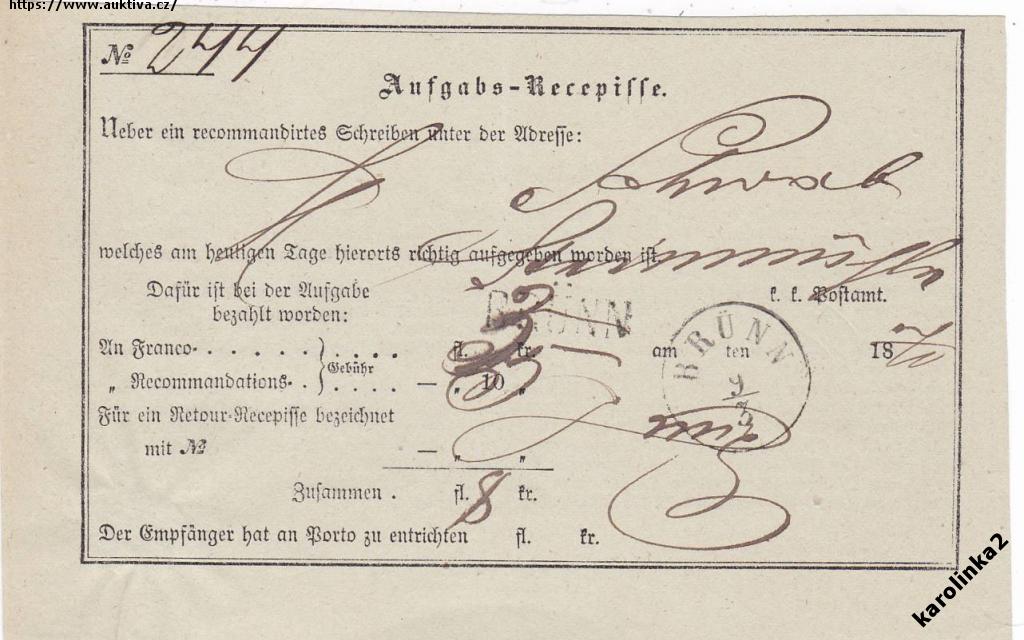 https://www.auktiva.cz/
№ 244
Aufgabs-Recepisse.
Ueber ein recommandirtes Schreiben unter der Adresse:
Schwab
welches am heutigen Tage hierorts richtig aufgegeben worden ist.
Dafür ist bei der Aufgabe
bezahlt worden:
BRÜNN
k. k. Postamt.
An Franco- . . . . . . } . . . . fl. kr.
Gebühr
„ Recommandations- . . } . . . . — „ 10 „
am ten 18
BRÜNN
9/3
Für ein Retour-Recepisse bezeichnet
mit № — „ „
Zusammen . fl. kr.
Der Empfänger hat an Porto zu entrichten fl. kr.
karolinka2